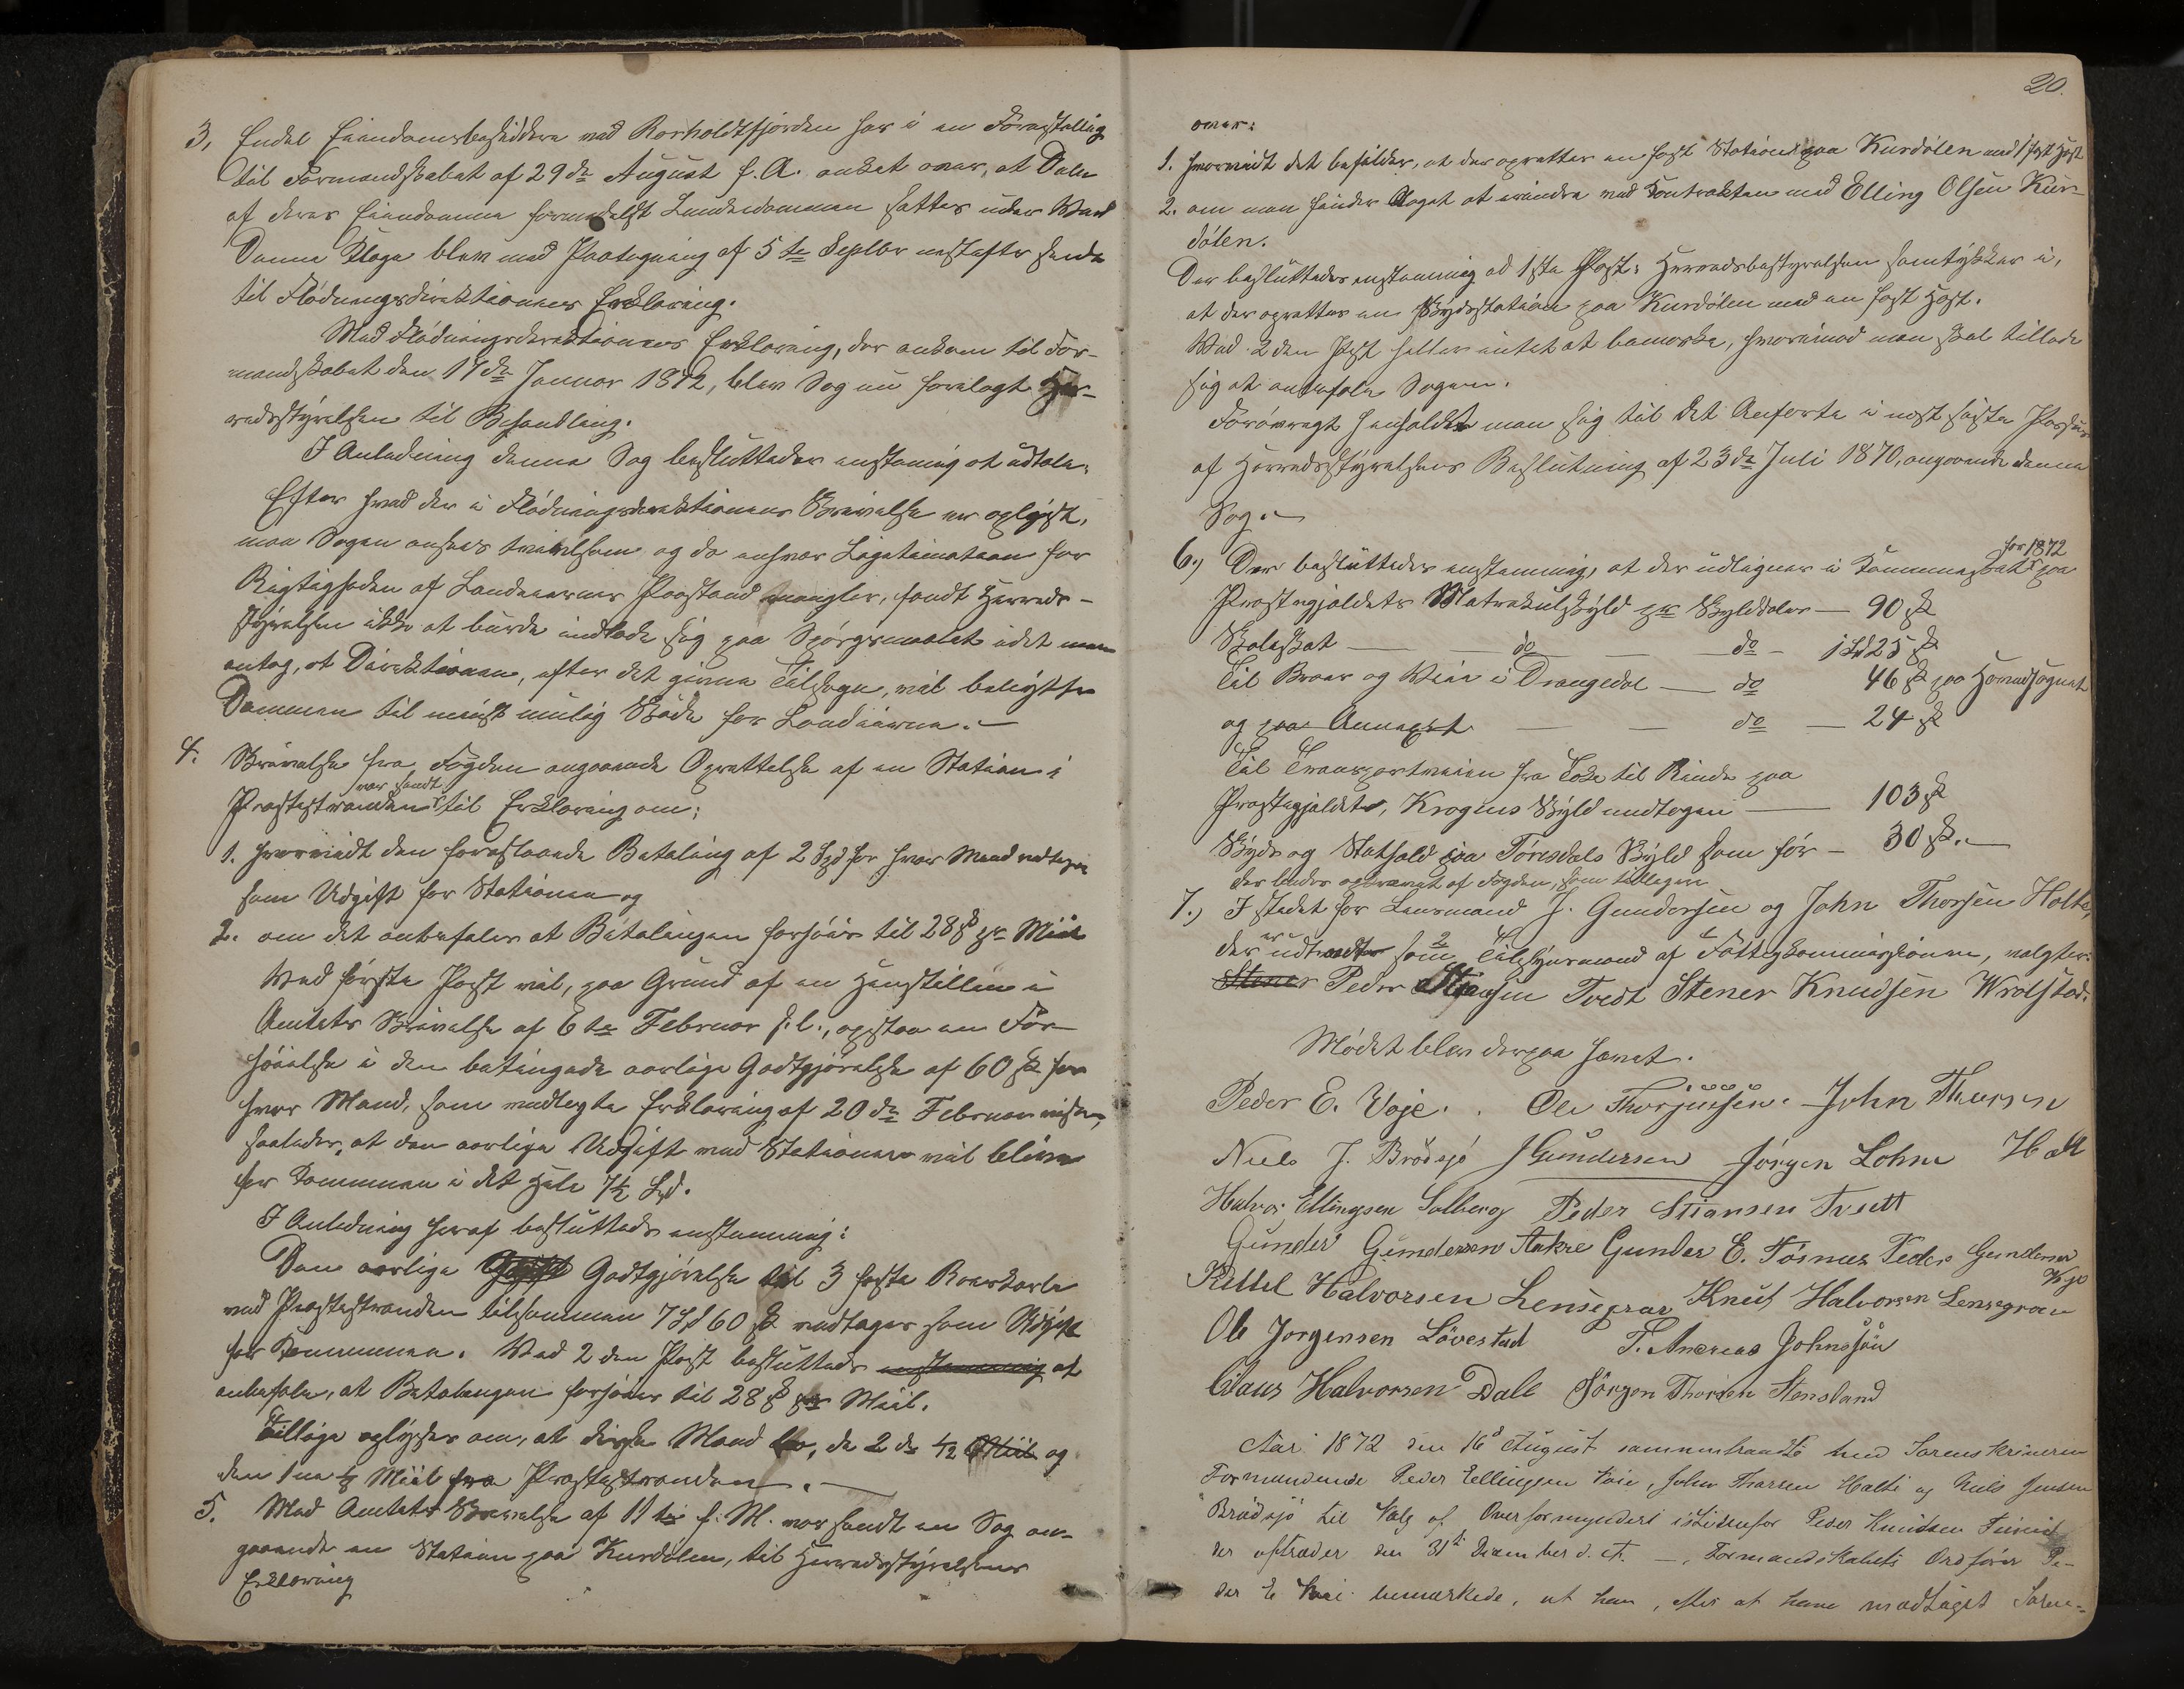 3, Endel Eiendomsbesiddere ved Rorholdtfjorden har i en Forestilling
til Formandskabet af 29de August f. A. anket over, at Dele
af deres Eiendomme formedelst Lundedammen sættes under Vand
Denne Klage blev med Paategning af 5te Septbr næstefter sendt
til Flødningsdirektionens Erklæring.
Med Flødningsdirektionens Erklæring, der ankom til For-
mandskabet den 17de Januar 1872, blev Sag nu forelagt Her-
redsstyrelsen til Behandling.
I Anledning denne Sag besluttedes enstemig at udtale:
Efter hvad der i Flødningsdirektionens Skrivelse er oplyst,
maa Sagen ansees tvivlsom og da enhver Legitimation for
Rigtigheden af Landeiernes Paastand mangler, fandt Herreds-
styrelsen ikke at burde indlade sig paa Spørgsmaalet idet man
antog, at Direktionen, efter det givne Tilsagn, vil benytte
Dammen til mindst mulig Skade for Landeierne. —
4. Skrivelse fra Fogden angaaende Oprettelse af en Station i
var sendt
Prestestranden til Erklæring om:
1. hvorvidt den foreslaaede Betaling af 2 Spd for hver Mand vedtages
som Udgift for Stationen og
2. om det anbefales at Betalingen forhøies til 28 ß pr Miil
Ved første Post vil, paa Grund af en Henstillen i
Amtets Skrivelse af 6te Februar f. l., opstaa en For-
høielse i den betingede aarlige Godtgjørelse af 60 ß for
hver Mand, som vedlagte Erklæring af 20de Februar viser,
saaledes, at den aarlige Udgift ved Stationen vil blive
for Kommunen i det Hele 7½ Spd.
I Anledning heraf besluttedes enstemmig:
Den aarlige Godtgjørelse til 3 faste Roerskarle
ved Prestestranden tilsammen 7 Spd 60 ß vedtages som Udgift
for Kommunen. Ved 2den Post besluttedes enstemmig at
anbefale, at Betalingen forhøies til 28 ß pr Miil.
Tillige oplyses om, at disse Mænd bo, de 2de 1/12 Miil og
den 1ne ½ Miil fra Prestestranden. —
5. Med Amtets Skrivelse af 11te f. M. var sendt en Sag an-
gaaende en Station paa Kurdølen, til Herredsstyrelsens
Erklæring
20.
over:
1. hvorvidt det befalder, at der oprettes en fast Station paa Kurdølen med 1 fast Hest
2. om man finder Noget at erindre ved Kontrakten med Elling Olsen Kur-
dølen.
Der besluttedes enstemmig ad 1ste Post: Herredsbestyrelsen samtykker i,
at der oprettes en Skydsstation paa Kurdølen med en fast Hest.
Ved 2den Post heller intet at bemærke, hvorimod man skal tillade
sig at anbefale Sagen.
Forøvrigt henholdt man sig til det Anførte i næst sidste Passus
af Herredsstyrelsens Beslutning af 23de Juli 1870, angaaende denne
Sag. —
for 1872
6.) Der besluttedes enstemmig, at der udlignes i Kommuneskat paa
Prestegjeldets Matrekulskyld pr Skylddaler — 90 ß
Skoleskat — do — do — 1 Spd 25 ß
Til Broer og Veie i Drangedal — do 46 ß paa Hovedsognet
og paa Annexet — — do — 24 ß
Til Transportveien fra Toke til Rinde paa
Prestegjeldet, Krogens Skyld undtagen — 103 ß
Skyds og Stathold paa Tørisdals Skyld som før — 30 ß. —
der bedes opnævnt af Fogden, som tillegen
7.) I stedet for Lensmand J. Gundersen og John Thorsen Holte,
der er udtraadt som 2 Tilsynsmænd af Fattigkommissionen, valgtes:
Stener Peder Stiansen Tvedt Stener Knudsen Wrolstad.
Mødet blev derpaa hævet.
Peder E. Voje. Ole Thorjussen. John Thorsen
Niels J. Brødsjø JGundersen Jörgen Lohne Holt
Halvor Ellingsen Solberg Peder Stiansen Tvedt
Gunder Gundersen Aakre Gunder E. Tørnes Peder Gundersen
Voje
Kittel Halvorsen Lensegrav Knut Halvorsen Lensegrav
Ole Jorgensen Lövestad T. Andreas Johnsøn
Claus Halvorsen Dale Jörgen Thorsen Stensland
Aar 1872 den 16de August sammentraadte hos Sorenskriveren
Formændene Peder Ellingsen Voie, John Thorsen Holte og Niels Jensen
Brødsjø til Valg af Overformynder istedenfor Peder Knudsen
der aftræder den 31te December d. A. —, Formandskabets Ordfører Pe-
der E. Voie bemærkede, at han, efter at have modtaget Soren-